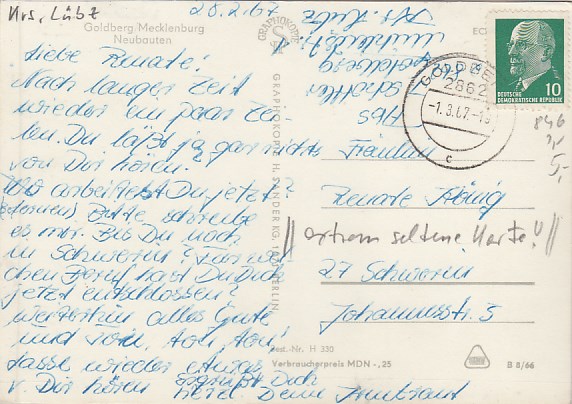 Krs. Lübz
28.2.67
Goldberg/Mecklenburg
Neubauten
Liebe Renate!
Nach langer Zeit
wieder ein paar Zei-
len. Du läßt ja gar nichts
von Dir hören.
Wo arbeitest Du jetzt?
Bitte schreibe
es mir. Bist Du noch
in Schwerin? Für wel-
chen Beruf hast Du Dich
jetzt entschlossen?
Weiterhin alles Gute
und
lasse wieder etwas
v. Dir hören
Es grüßt Dich
Deine
GRAPHOKOPIE
GRAPHOKOPIE H. SANDER KG. BERLIN
Abs.
Kr. Lübz
DEUTSCHE
DEMOKRATISCHE REPUBLIK
10
GOLDBE
2862
-1.3.67-
c
846
5,-
Fräulein
Renate König
// extrem seltene Karte! //
27 Schwerin
Johannesstr. 3
Best.-Nr. H 330
Verbraucherpreis MDN -,25
B 8/66